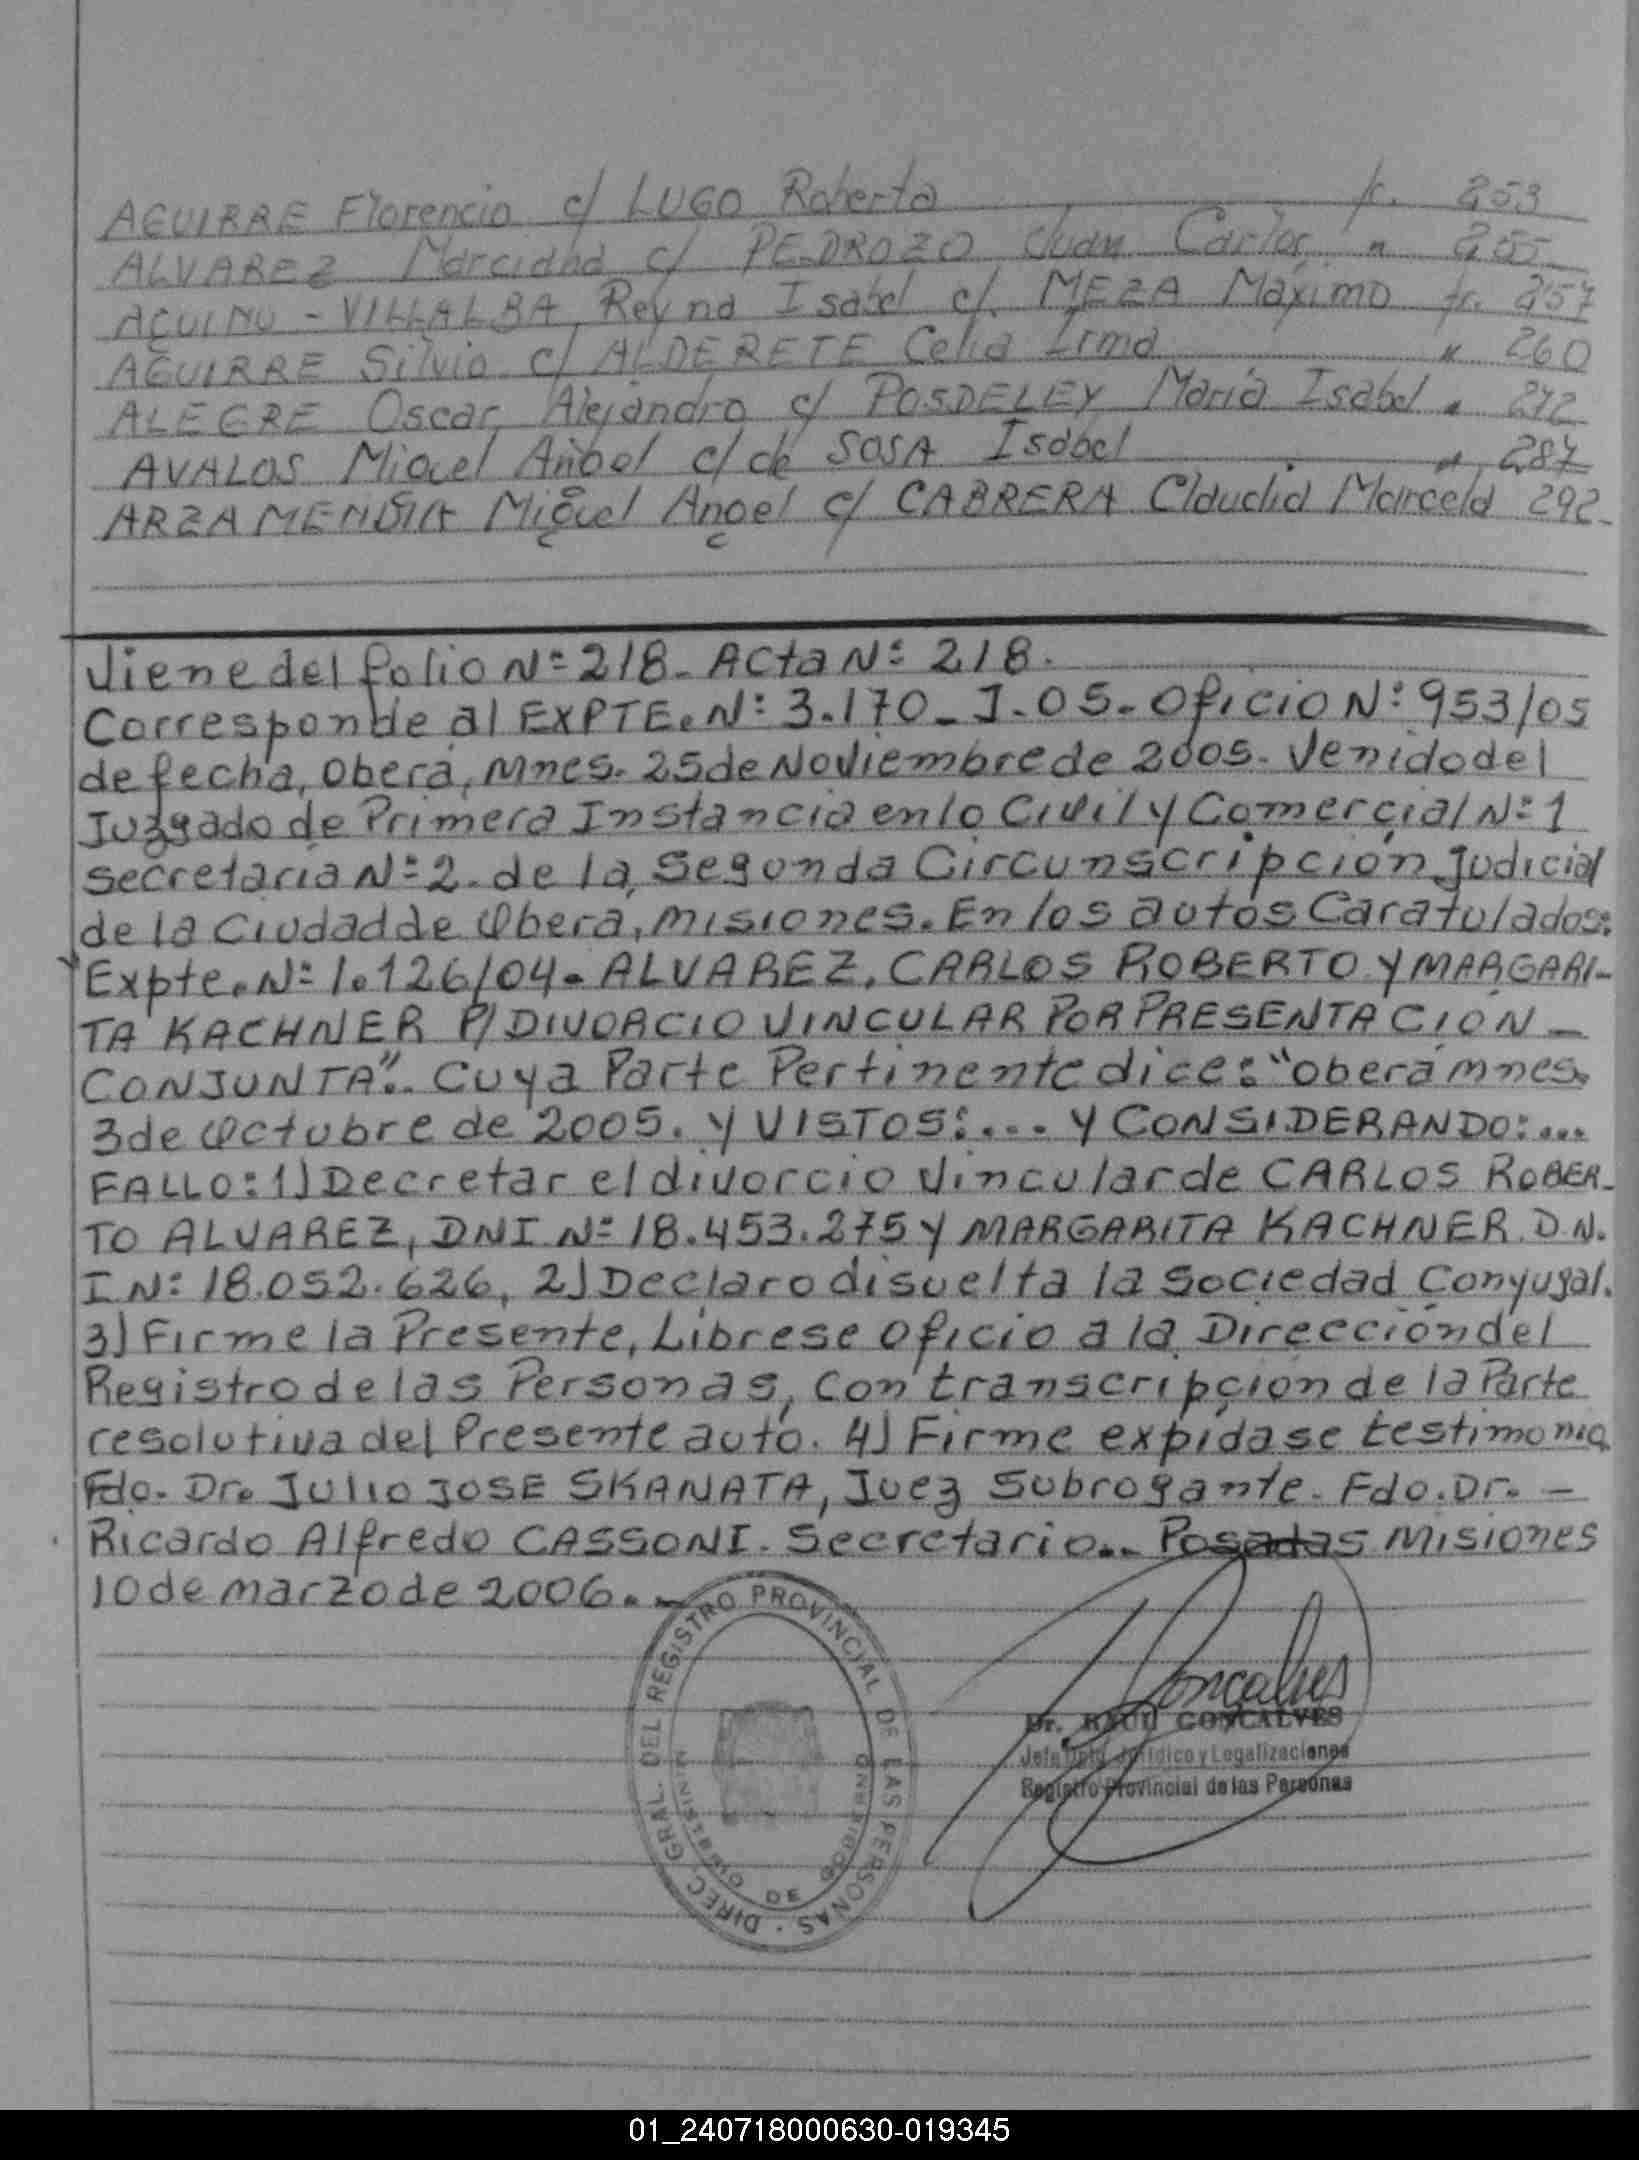 AGUIRRE Florencio c/ LUGO Roberta fr. 253
ALVAREZ Marciana c/ PEDROZO Juan Carlos " 255
AQUINO - VILLALBA Reyna Isabel c/. MEZA Máximo fr. 257
AGUIRRE Silvio c/ ALDERETE Celia Irma " 260
ALEGRE Oscar Alejandro c/ POSDELEY María Isabel " 272
AVALOS Miguel Anbel c/ de SOSA Isabel " 287
ARZAMENDIA Miguel Angel c/ CABRERA Claudia Marcela 292-
Viene del folio Nº 218- Acta Nº 218.
Corresponde al EXPTE. Nº 3.170-J-05. Oficio Nº 953/05
de fecha, Oberá, Mnes. 25 de Noviembre de 2005. Venido del
Juzgado de Primera Instancia en lo Civil y Comercial Nº 1
secretaría Nº 2. de la Segunda Circunscripción Judicial
de la Ciudad de Oberá, Misiones. En los autos Caratulados:
"Expte. Nº 1.126/04- ALVAREZ, CARLOS ROBERTO Y MARGARI-
TA KACHNER P/ DIVORCIO VINCULAR POR PRESENTACIÓN -
CONJUNTA". Cuya Parte Pertinente dice: "Oberá mnes.
3 de Octubre de 2005. Y VISTOS:... Y CONSIDERANDO:...
FALLO: 1) Decretar el divorcio vincular de CARLOS ROBER-
TO ALVAREZ, DNI Nº 18.453.275 Y MARGARITA KACHNER. D.N.
I Nº 18.052.626, 2) Declaro disuelta la Sociedad Conyugal.
3) Firme la Presente, Líbrese oficio a la Dirección del
Registro de las Personas, Con transcripción de la Parte
resolutiva del Presente auto. 4) Firme expídase testimonio
Fdo. Dr. Julio JOSE SKANATA, Juez Subrogante. Fdo. Dr. -
Ricardo Alfredo CASSONI. Secretario.- Posadas Misiones
10 de marzo de 2006.-
DIREC. GRAL. DEL REGISTRO PROVINCIAL DE LAS PERSONAS
DE
Goncalves
Dr. RAUL GONCALVES
Jefe Dpto. Jurídico y Legalizaciones
Registro Provincial de las Personas
01_240718000630-019345